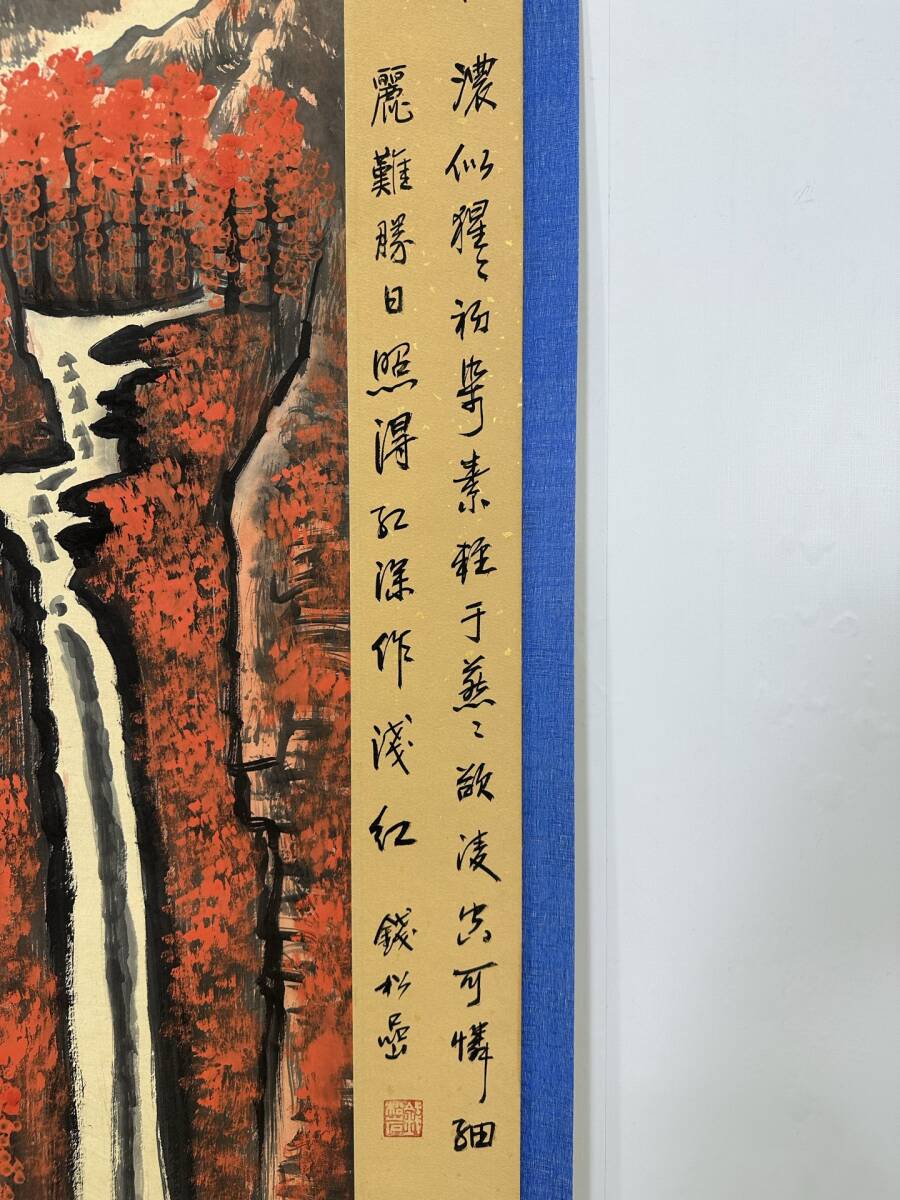 濃似猩〻初染素輕于燕〻欲凌空可憐細
麗難勝日照得紅深作淺紅 錢松嵒